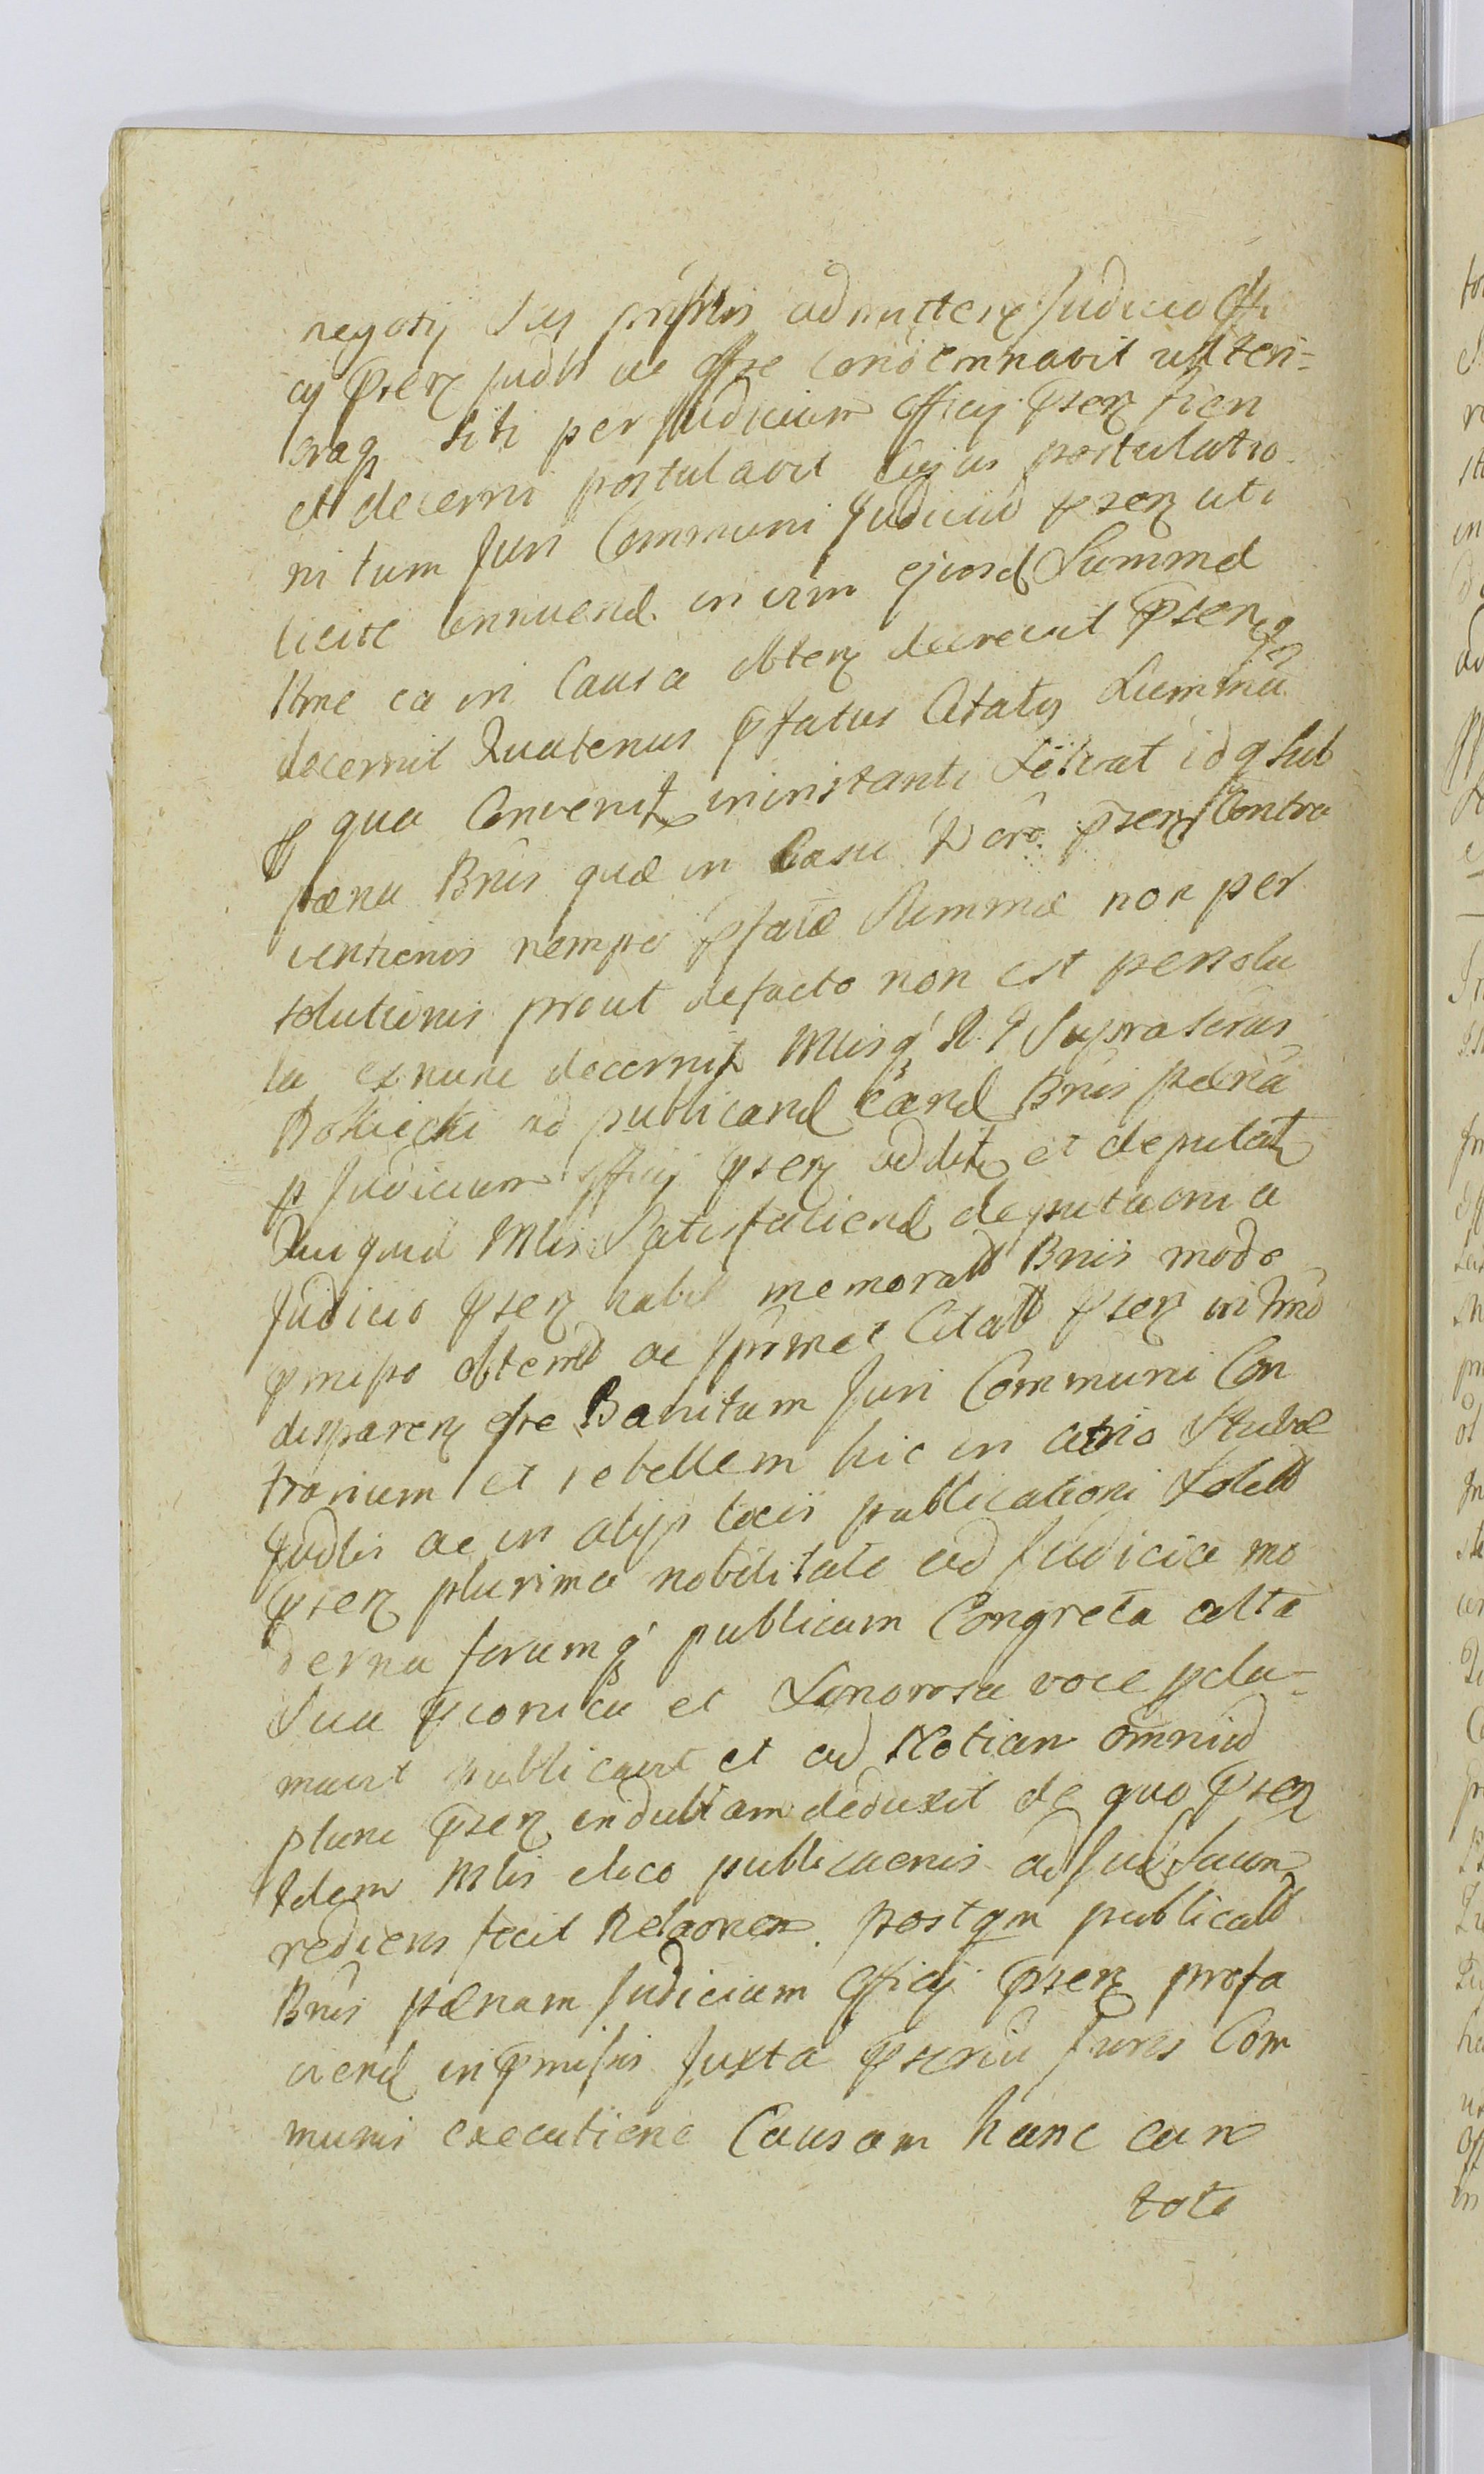 negotij sui admittere Judicio Offi
cij pser condemnavit ulteri=
oraq sibi per Judicium officij pser fieri
et decerni postulavit Cujus postulatio
ni tum Juri Communi Judiciũ pser uti
licite annuend in vim ejusd Summæ
ea in Causa obten decrevit pser
decernit Quatenus pfatus Citatus Summã
p qua Convenit in instanti idq sub
pæna Bnis quæ in Casu pser Contra
ventionis nempe pfatæ Summæ non per
solutionis prout defacto non est persolu
ta exnunc decernit Mlisq R. P. Suprascrus
ad publicand eand Bnis pœnã
p Judicium offcij pser addit et deputat
Qui quid Mlis Satisfaciend deputaoni a
Judicio pser habit memorat Bnis modo
pmipo obtent ac Citat pser in
disparen esse Banitum Juri Communi Con
trarium et rebellem hic in atrio Stubæ
Judlis ac in alijs locis publicationi Solit
pser plurima nobilitate ad Judicia mo
derna forumq publicum Congreta alta
Sua et Sonorosa voce pcla=
mavit publicavit et ad Notiam omniũ
plune pser indubiam deduxit de quo pser
Idem Mlis elico publicaonis ad Jud Suam
rediens fecit Relaonem postqm publicat
Bnis pœnam Judicium Officij pser profa
ciend in pmissis Juxta Juris Com
munis executione Causam hanc cum
toto